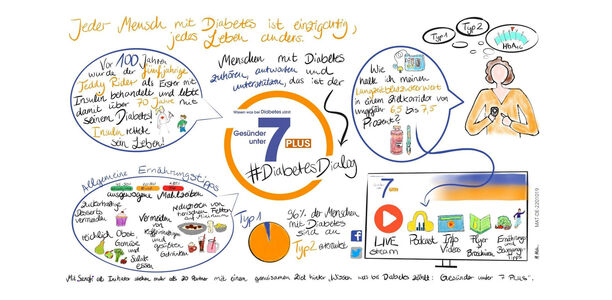 Jeder Mensch mit Diabetes ist einzigartig,
jedes Leben anders.
Vor 100 Jahren
wurde der fünfjährige
Teddy Rider als Erster mit
Insulin behandelt und lebte
damit über 70 Jahre mit
seinem Diabetes!
Insulin rettete
sein Leben!
Menschen mit Diabetes
zuhören, antworten und
unterstützen, das ist der
Wissen was bei Diabetes zählt:
Gesünder
unter 7 PLUS
#DiabetesDialog
Wie
halte ich meinen
Langzeitblutzuckerwert
in einem Zielkorridor von
ungefähr 6,5 bis 7,5
Prozent?
Typ 1
Typ 2
HbA1c
Allgemeine Ernährungstipps
ausgewogene Mahlzeiten
zuckerhaltige
Desserts
vermeiden
reduzieren von
tierischen Fetten
Vermeiden
von
koffeinhaltigen
und
gesüßten
Getränken
reichlich Obst,
Gemüse
und
Salate
essen
Typ 1
96% der Menschen
mit Diabetes
sind an
Typ 2 erkrankt
7 PLUS
LIVE
stream
Podcast
Info
Videos
Flyer
Broschüren
Ernährungs-
und
Bewegungs-
Tipps
MAT-DE-2201019
Mit Sanofi als Initiator stehen mehr als 20 Partner mit einem gemeinsamen Ziel hinter „Wissen was bei Diabetes zählt: Gesünder unter 7 PLUS“.